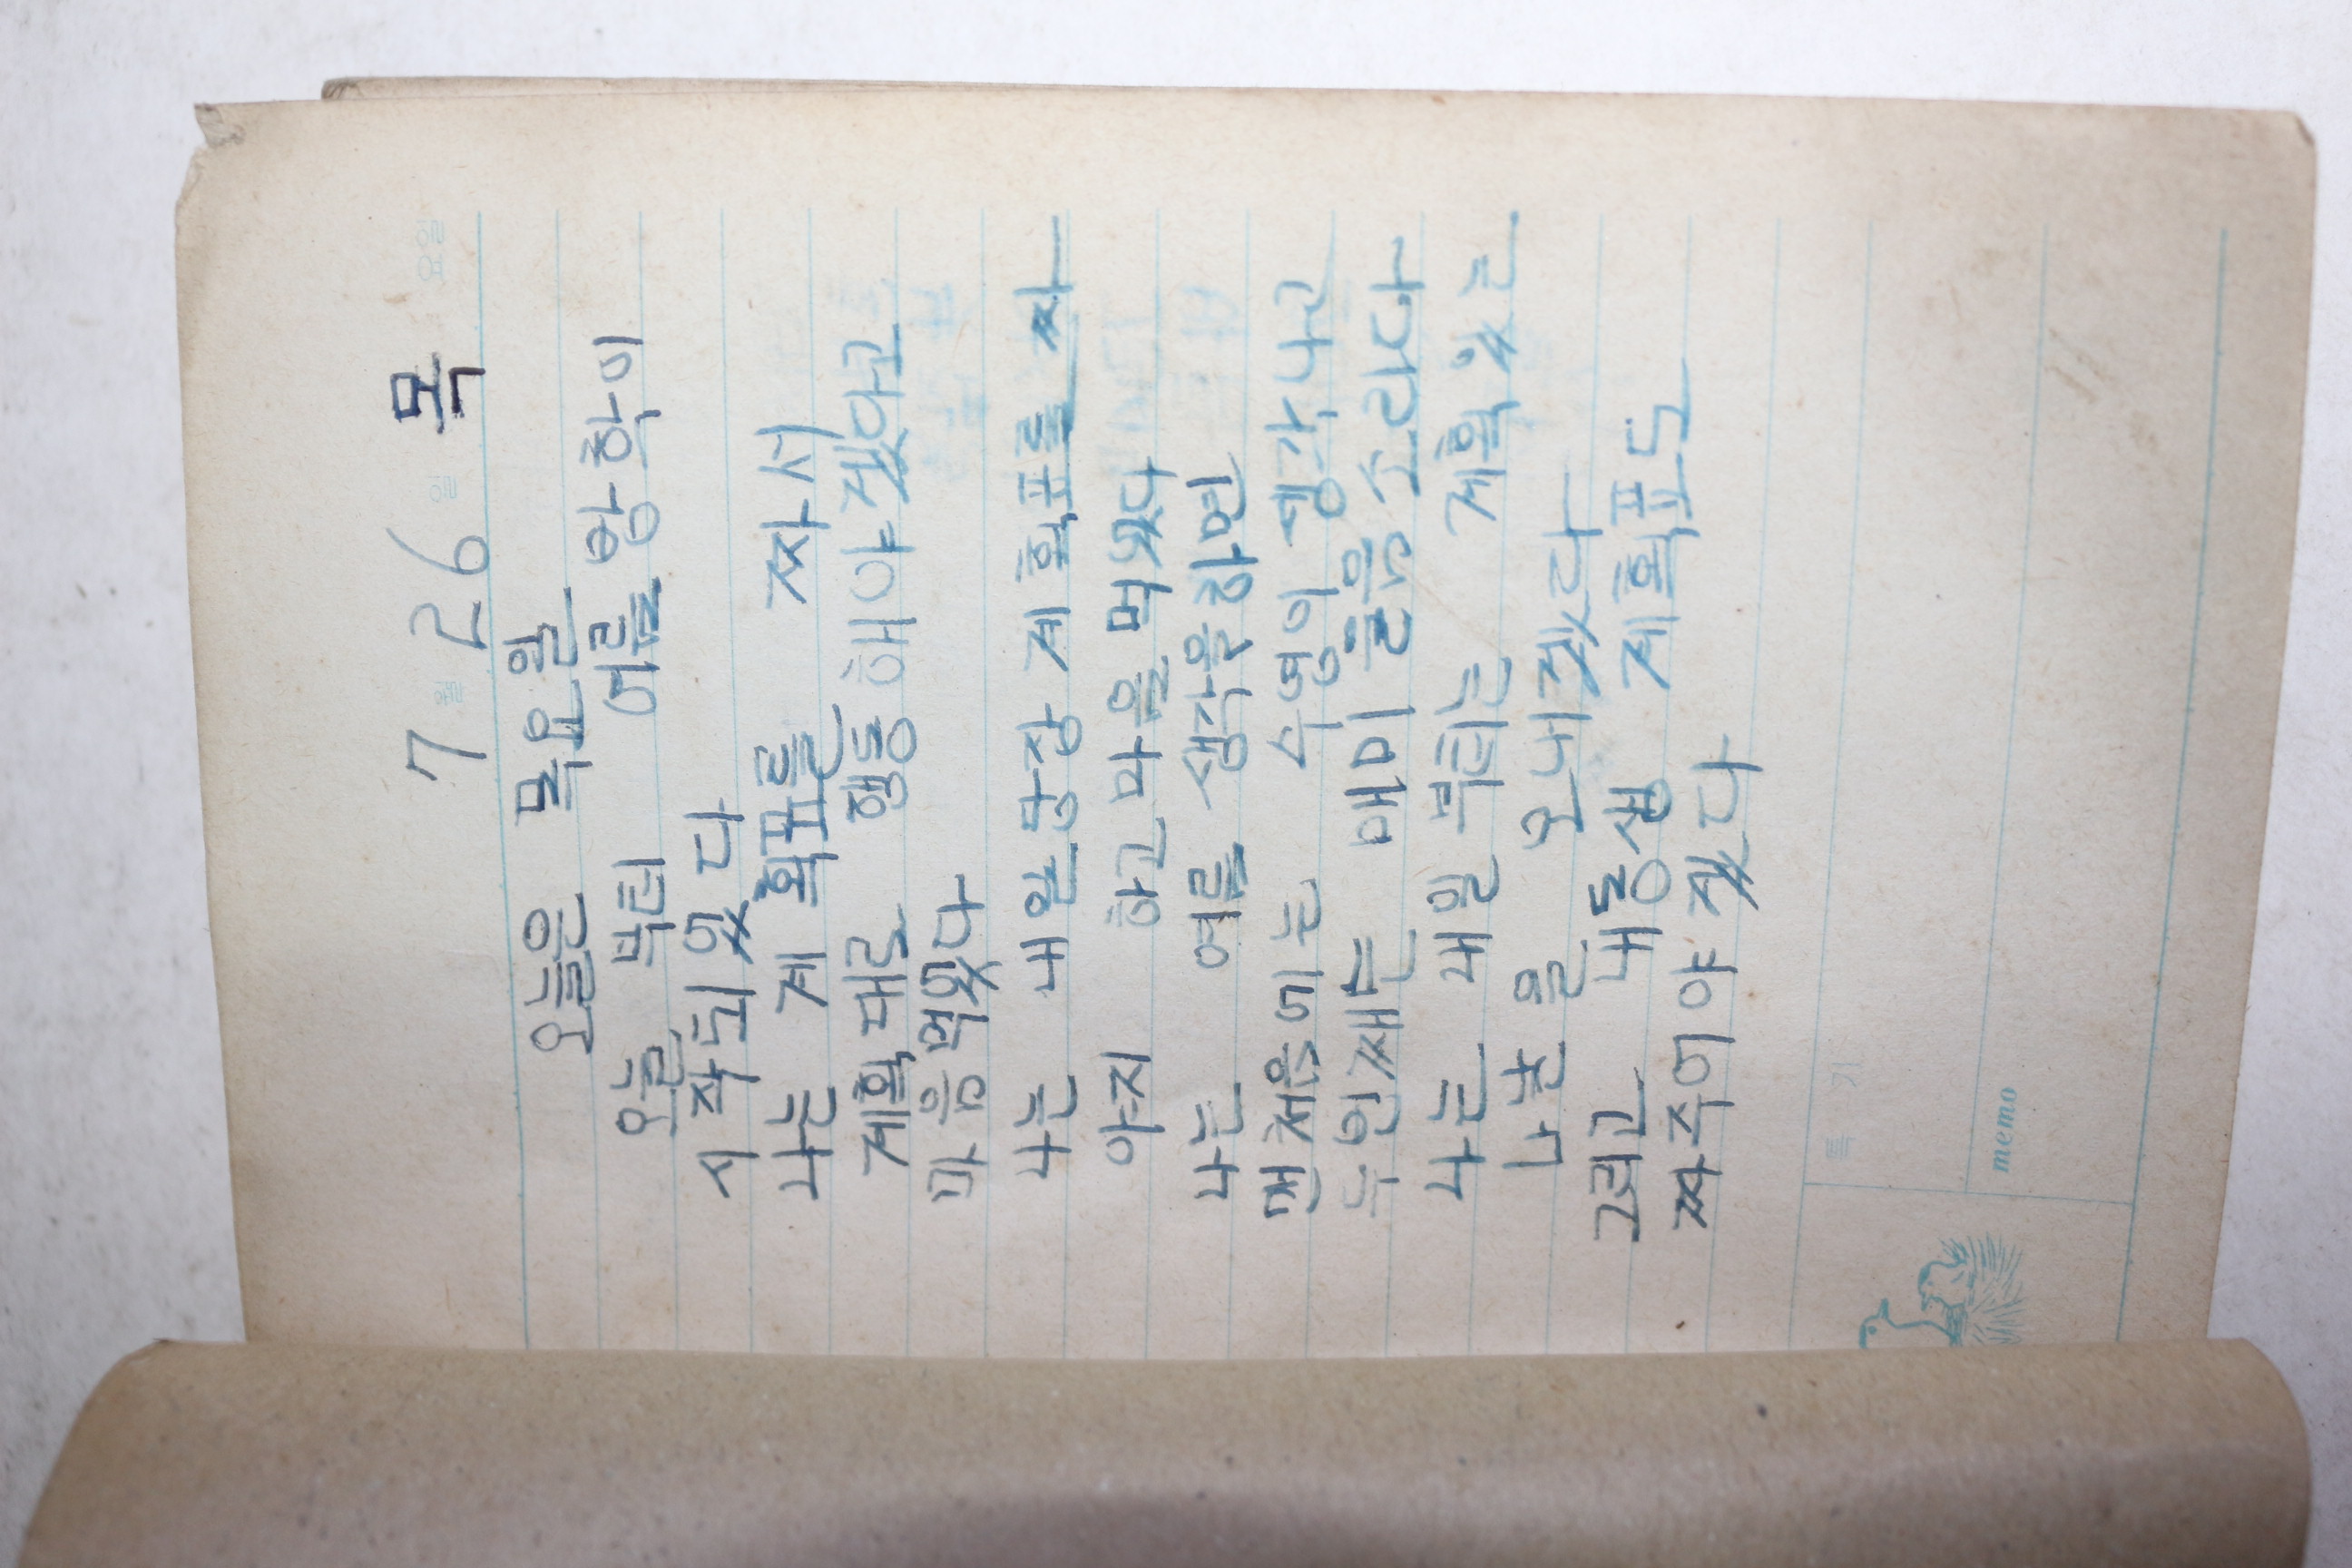 7 26 목
오늘은 목요일
오늘 부터 여름 방학이
시작되었다
나는 계획표를 짜서
계획대로 행동해야겠다고
마음먹었다
나는 내일당장 계획표를 짜
야지 하고 마음 먹었다
나는 여름 생각을 하면
맨처음에는 수영이 생각나고
두번째는 매미 울음 소리다
나는 내일 부터는 계획 있는
나날 을 보내겠다
그리고 내동생 계획표도
짜주어야 겠다
특 기
memo